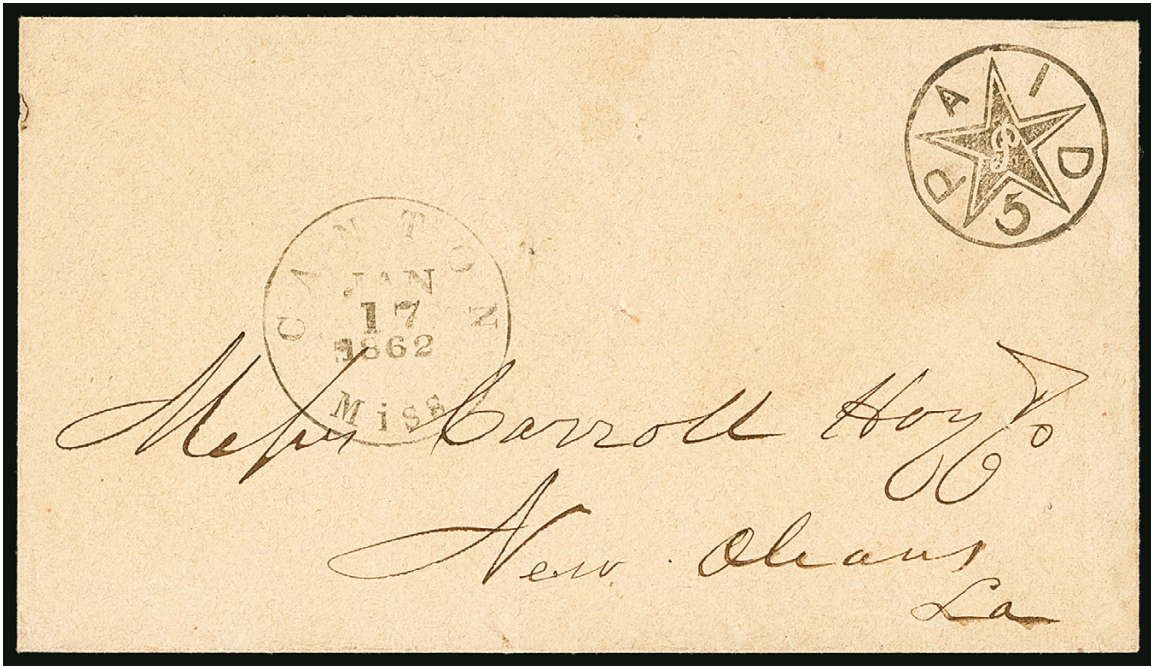 PAID
P
5
CANTON
JAN
17
1862
Miss
Messrs Carroll Hoy & Co
New Orleans
La